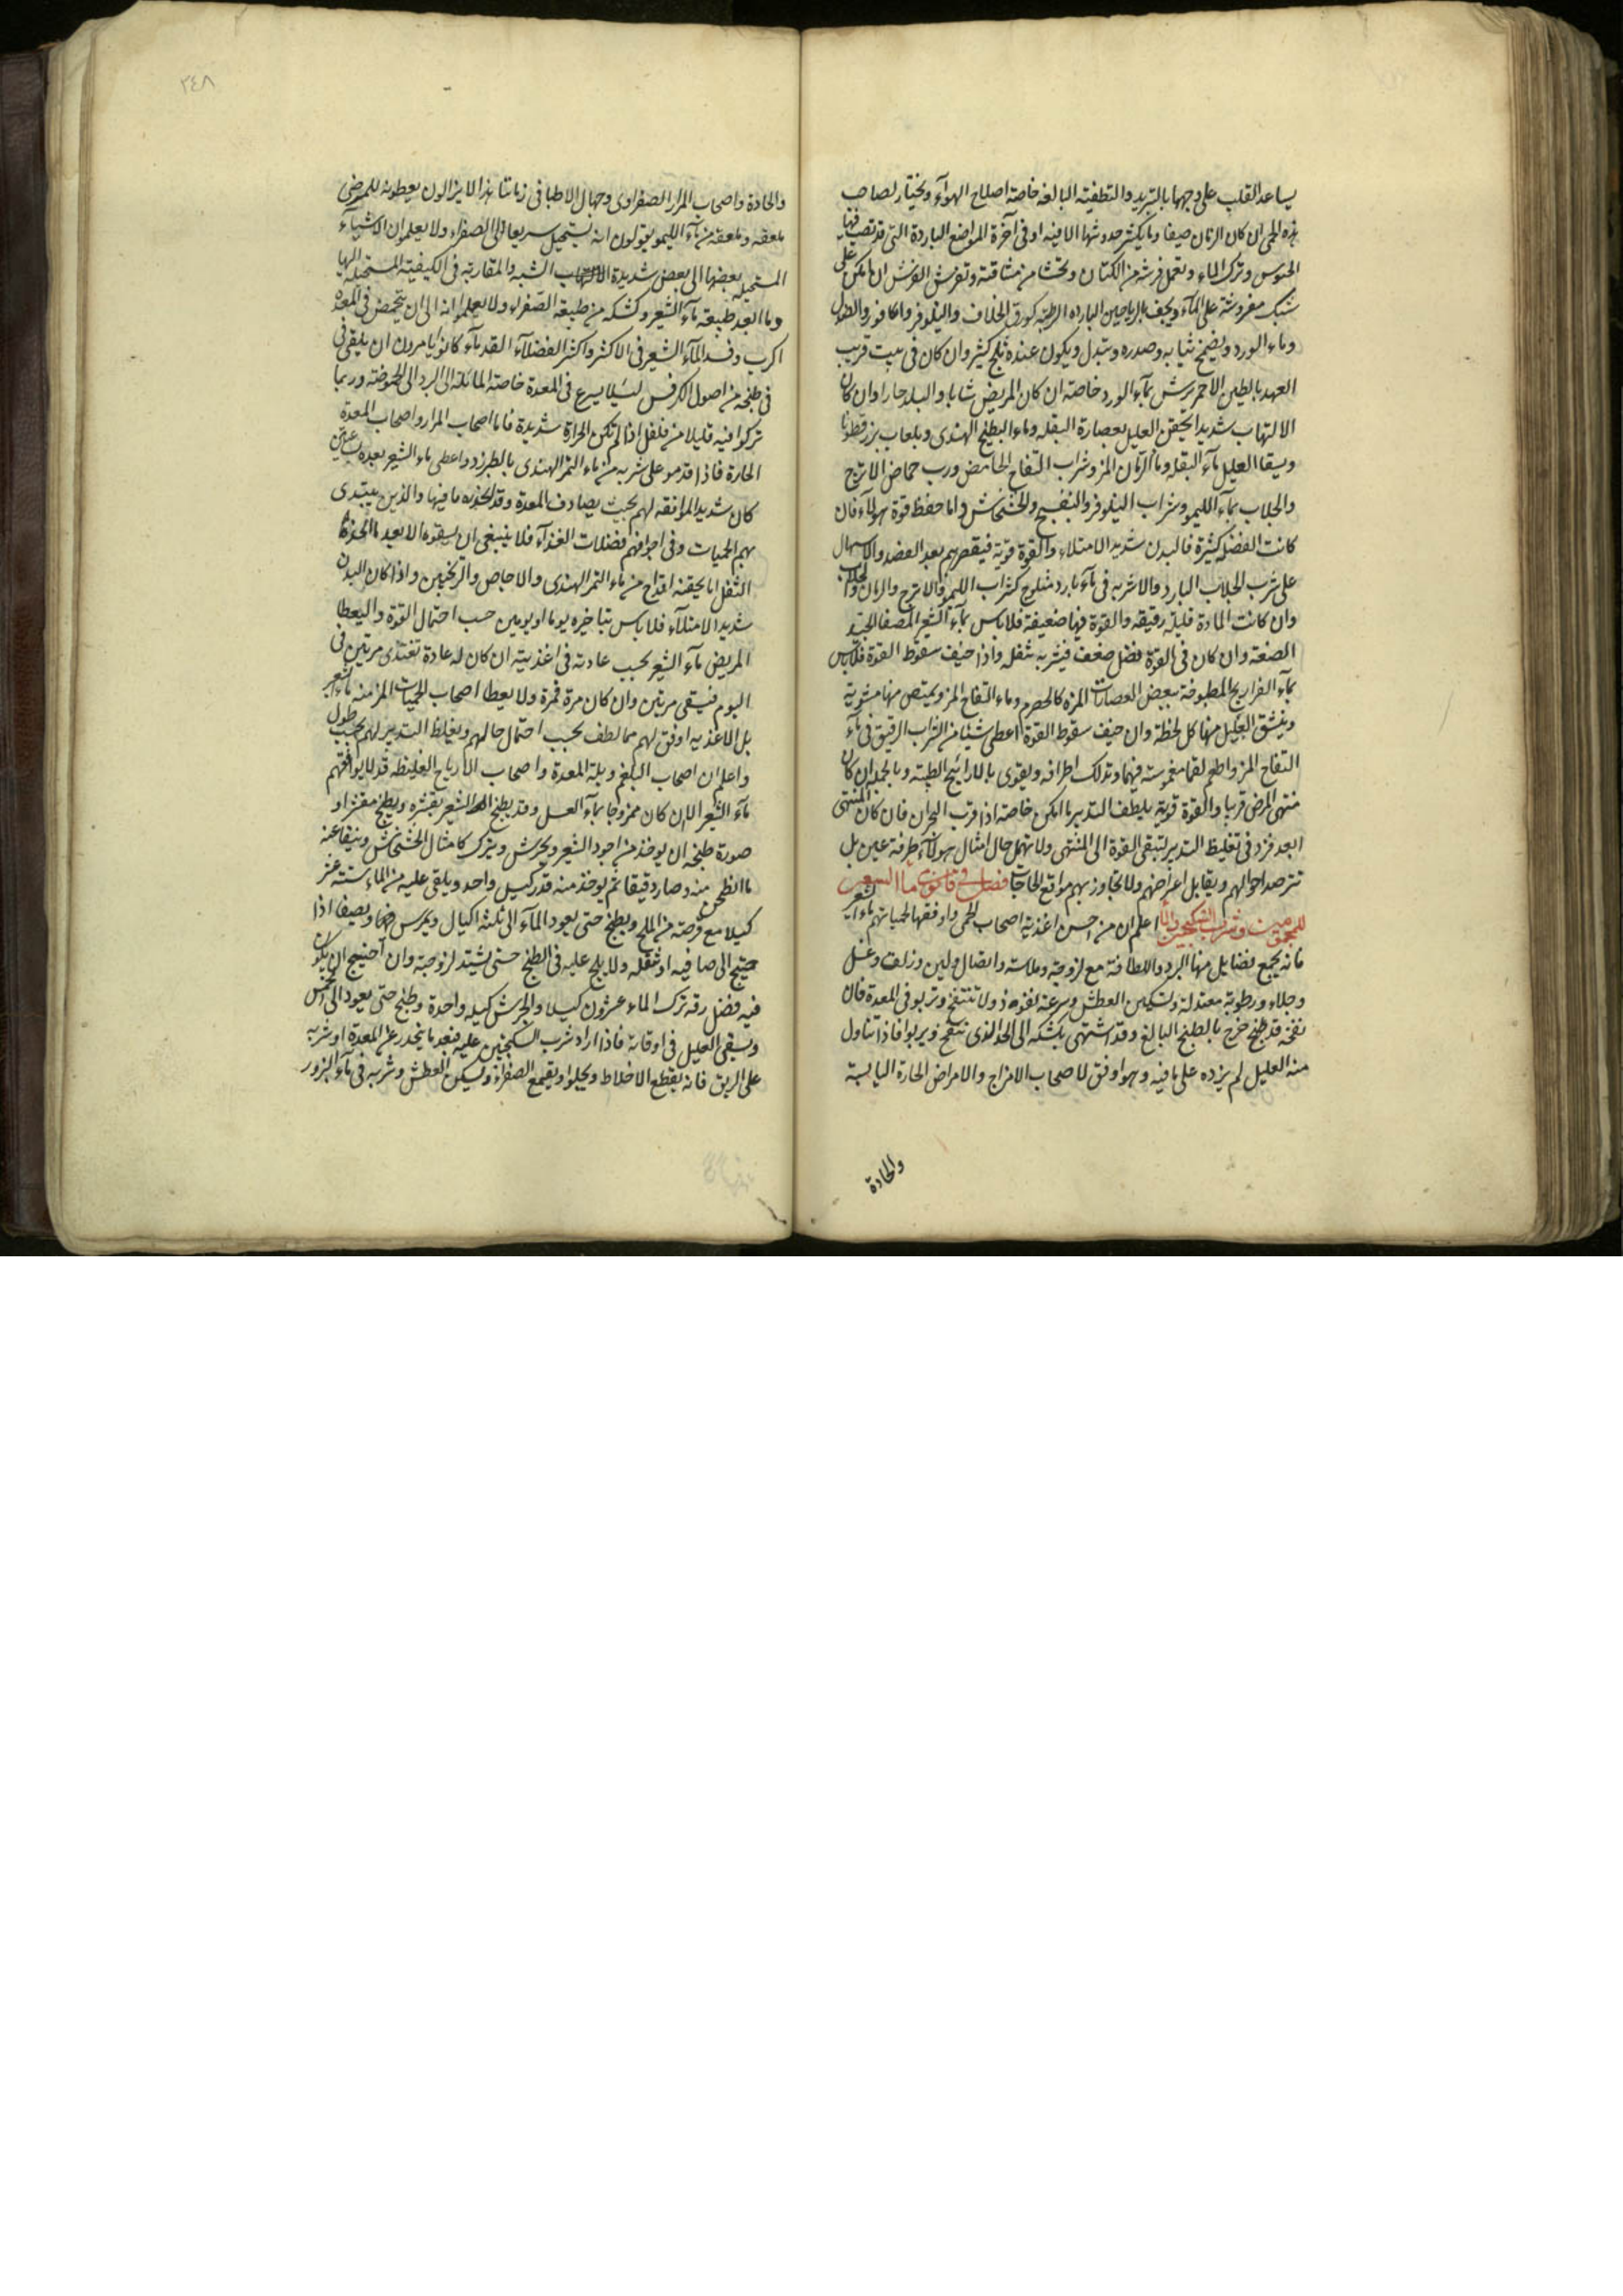 يساعد القلب على وجهها بالتبريد والتطفية البالغة خاصة اصلاح الهوآء ويختار لصاحب
هذه الحمى ان كان الزمان صيفا وما يكثر حدوثها الا فيه او فى آخرة المواضع الباردة التى قد نصب فيها
الخيوس وترك الماء ويعمل فرشه من الكتان ويحشا من مشاقته وتفرش الفرش ان امكن على
شبك مفروشة على المآء ويحف بالرياحين الباردة الرطبة كورق الخلاف والنيلوفر والكافور والصندل
وماء الورد ويضمخ ثيابه وصدره وتبدل ويكون عنده ثلج كثير وان كان فى بيت قريب
العهد بالطين الاحمر يرش بمآء الورد خاصة ان كان المريض شابا والبلد حارا وان كان
الالتهاب شديدا يحقن العليل بعصارة البقلة وماء البطيخ الهندى وبلعاب بزرقطونا
ويسقا العليل مآء البقلة وماء الرمان المز وشراب التفاح الحامض ورب حماض الاترج
والجلاب بمآء الليمو وشراب النيلوفر والبنفسج والخشخاش واما حفظ قوة هولآء فان
كانت الفضل كثيرة فالبدن شديد الامتلاء والقوة قوية فيقصر بهم بعد الفصد والاسهال
على شرب الجلاب البارد والاشربة فى مآء بارد مثلوج كشراب الليمو والاترج والرمان والجلاب
وان كانت المادة قليلة رقيقة والقوة فيها ضعيفة فلا باس بمآء الشعير المصفا الجيد
الصنعة وان كان فى القوة فضل ضعف فيشربه بثفله واذا خيف سقوط القوة فلا باس
بمآء الفراريج المطبوخة ببعض العصارات المزة كالحصرم وماء التفاح المز ويمتص منها مشوية
وينشق العليل منها كل لحظة وان خيف سقوط القوة اعطى شيئا من الشراب الرقيق فى مآء
التفاح المز واطعم لقما مغموسة فيهما وتدلك اطرافه ويقوى بالاراييح الطيبة وبالجملة ان كان
منتهى المرض قريبا والقوة قوية يلطف التدبير ما امكن خاصة اذا قرب البحران فان كان المنتهى
ابعد فزد فى تغليظ التدبير لتبقى القوة الى المنتهى ولا تهمل حال امثال هولآء طرفة عين بل
تترصد احوالهم ويقابل اعراضهم ولا تجاوز بهم مواقع الحاجات فصل فى قانون ماء الشعير
للمحمومين وشرب السكنجبين اعلم ان من احسن اغذية اصحاب الحمى واوفقها لحمياتهم ماء الشعير
فانه يجمع فضايل منها البرد واللطافة مع لزوجة وملاسة واتصال ولين وزلق وغسل
وجلاء ورطوبة معتدلة وتسكين العطش وسرعة نفوذ ولا تنتفخ وتربو فى المعدة فان
نفخة قد طبخ خرج بالطبخ البالغ وقد انتهى بكشكه الى الحد الذى ينتفخ ويربوا فاذا تناول
منه العليل لم يزده على ما فيه وهو اوفق لاصحاب الامزاج والامراض الحارة اليابسة
والحادة
٣٤٨
والحادة واصحاب المرار الصفراوى وجهال الاطبا فى زماننا هذا لا يزالون يعطونه للمرضى
ملعقة وملعقة من مآء الليمو يقولون انه يستحيل سريعا الى الصفراء ولا يعلمون ان الاشيآء
المستحيلة بعضها الى بعض شديدة الشبه والمقاربة فى الكيفية المستحيلة اليها
وما ابعد طبيعة مآء الشعير وكشكه من طبيعة الصفراء ولا يعلموا انه الى ان يتحمض فى المعدة
اكرب وفسد المآء الشعير فى الاكثر واكثر الفضلآء القدمآء كانوا يامرون ان يلقى فى
فى طبخه من اصول الكرفس لئلا يسرع فى المعدة خاصة المائلة الى البرد الى الحموضة وربما
تركوا فيه قليلا من فلفل اذا لم تكن الحرارة شديدة فاما اصحاب المرار واصحاب المعدة
الحارة فاذا قدموا على شربه من ماء التمر الهندى بالطبرزد واعطى ماء الشعير بعده بساعتين
كان شديد الموافقة لهم بحيث يصادف المعدة وقد انحدر ما فيها والذين يبتدى
بهم الحميات وفى اجوافهم فضلات الغذآء فلا ينبغى ان يسقوه الا بعد
الثفل اما بحقنة اقداح من ماء التمر الهندى والاجاص والترنجبين واذا كان البدن
شديد الامتلآء فلا باس بتاخيره يوما او يومين حسب احتمال القوة واليعطا
المريض مآء الشعير بحسب عادته فى اغذيته ان كان له عادة تغتذى مرتين فى
اليوم فيسقى مرتين وان كان مرة فمرة ولا يعطا اصحاب الحميات المزمنة ماء الشعير
بل الاغذية اوفق لهم مما لطف بحسب احتمال حالهم ويغلظ التدبير لهم بحسب طول
واعلم ان اصحاب البلغم وبلة المعدة واصحاب الارياح الغليظة قد لا يوافقهم
مآء الشعير الا ان كان ممزوجا بمآء العسل وقد يطبخ الشعير بقشره ويطبخ مقشرا و
صورة طبخه ان يوخذ من اجود الشعير ويجرش ويترك كامثال الخشخاش وينقا عنه
ما انطحن منه وصار دقيقا ثم يوخذ منه قدر كيل واحد ويلقى عليه من الماء ستة عشر
كيلا مع قرصة من الملح ويطبخ حتى يعود المآء الى ثلثة اكيال ويمرس ويصفا اذا
حتيج الى صافيه او ثفله ولا يلح عليه فى الطبخ حتى تشتد لزوجته وان احتيج ان يكون
فيه فضل رقة ترك الماء عشرون كيلا والجرش كيلة واحدة وطبخ حتى يعود الى الخمس
ويسقى العليل فى اوقاته فاذا اراد شرب السكنجبين عليه فبعد ما ينحدر عن المعدة او شربه
على الريق فانه يقطع الاخلاط ويجلوا ويقمع الصفراء ويسكن العطش وشربه فى مآء البزور